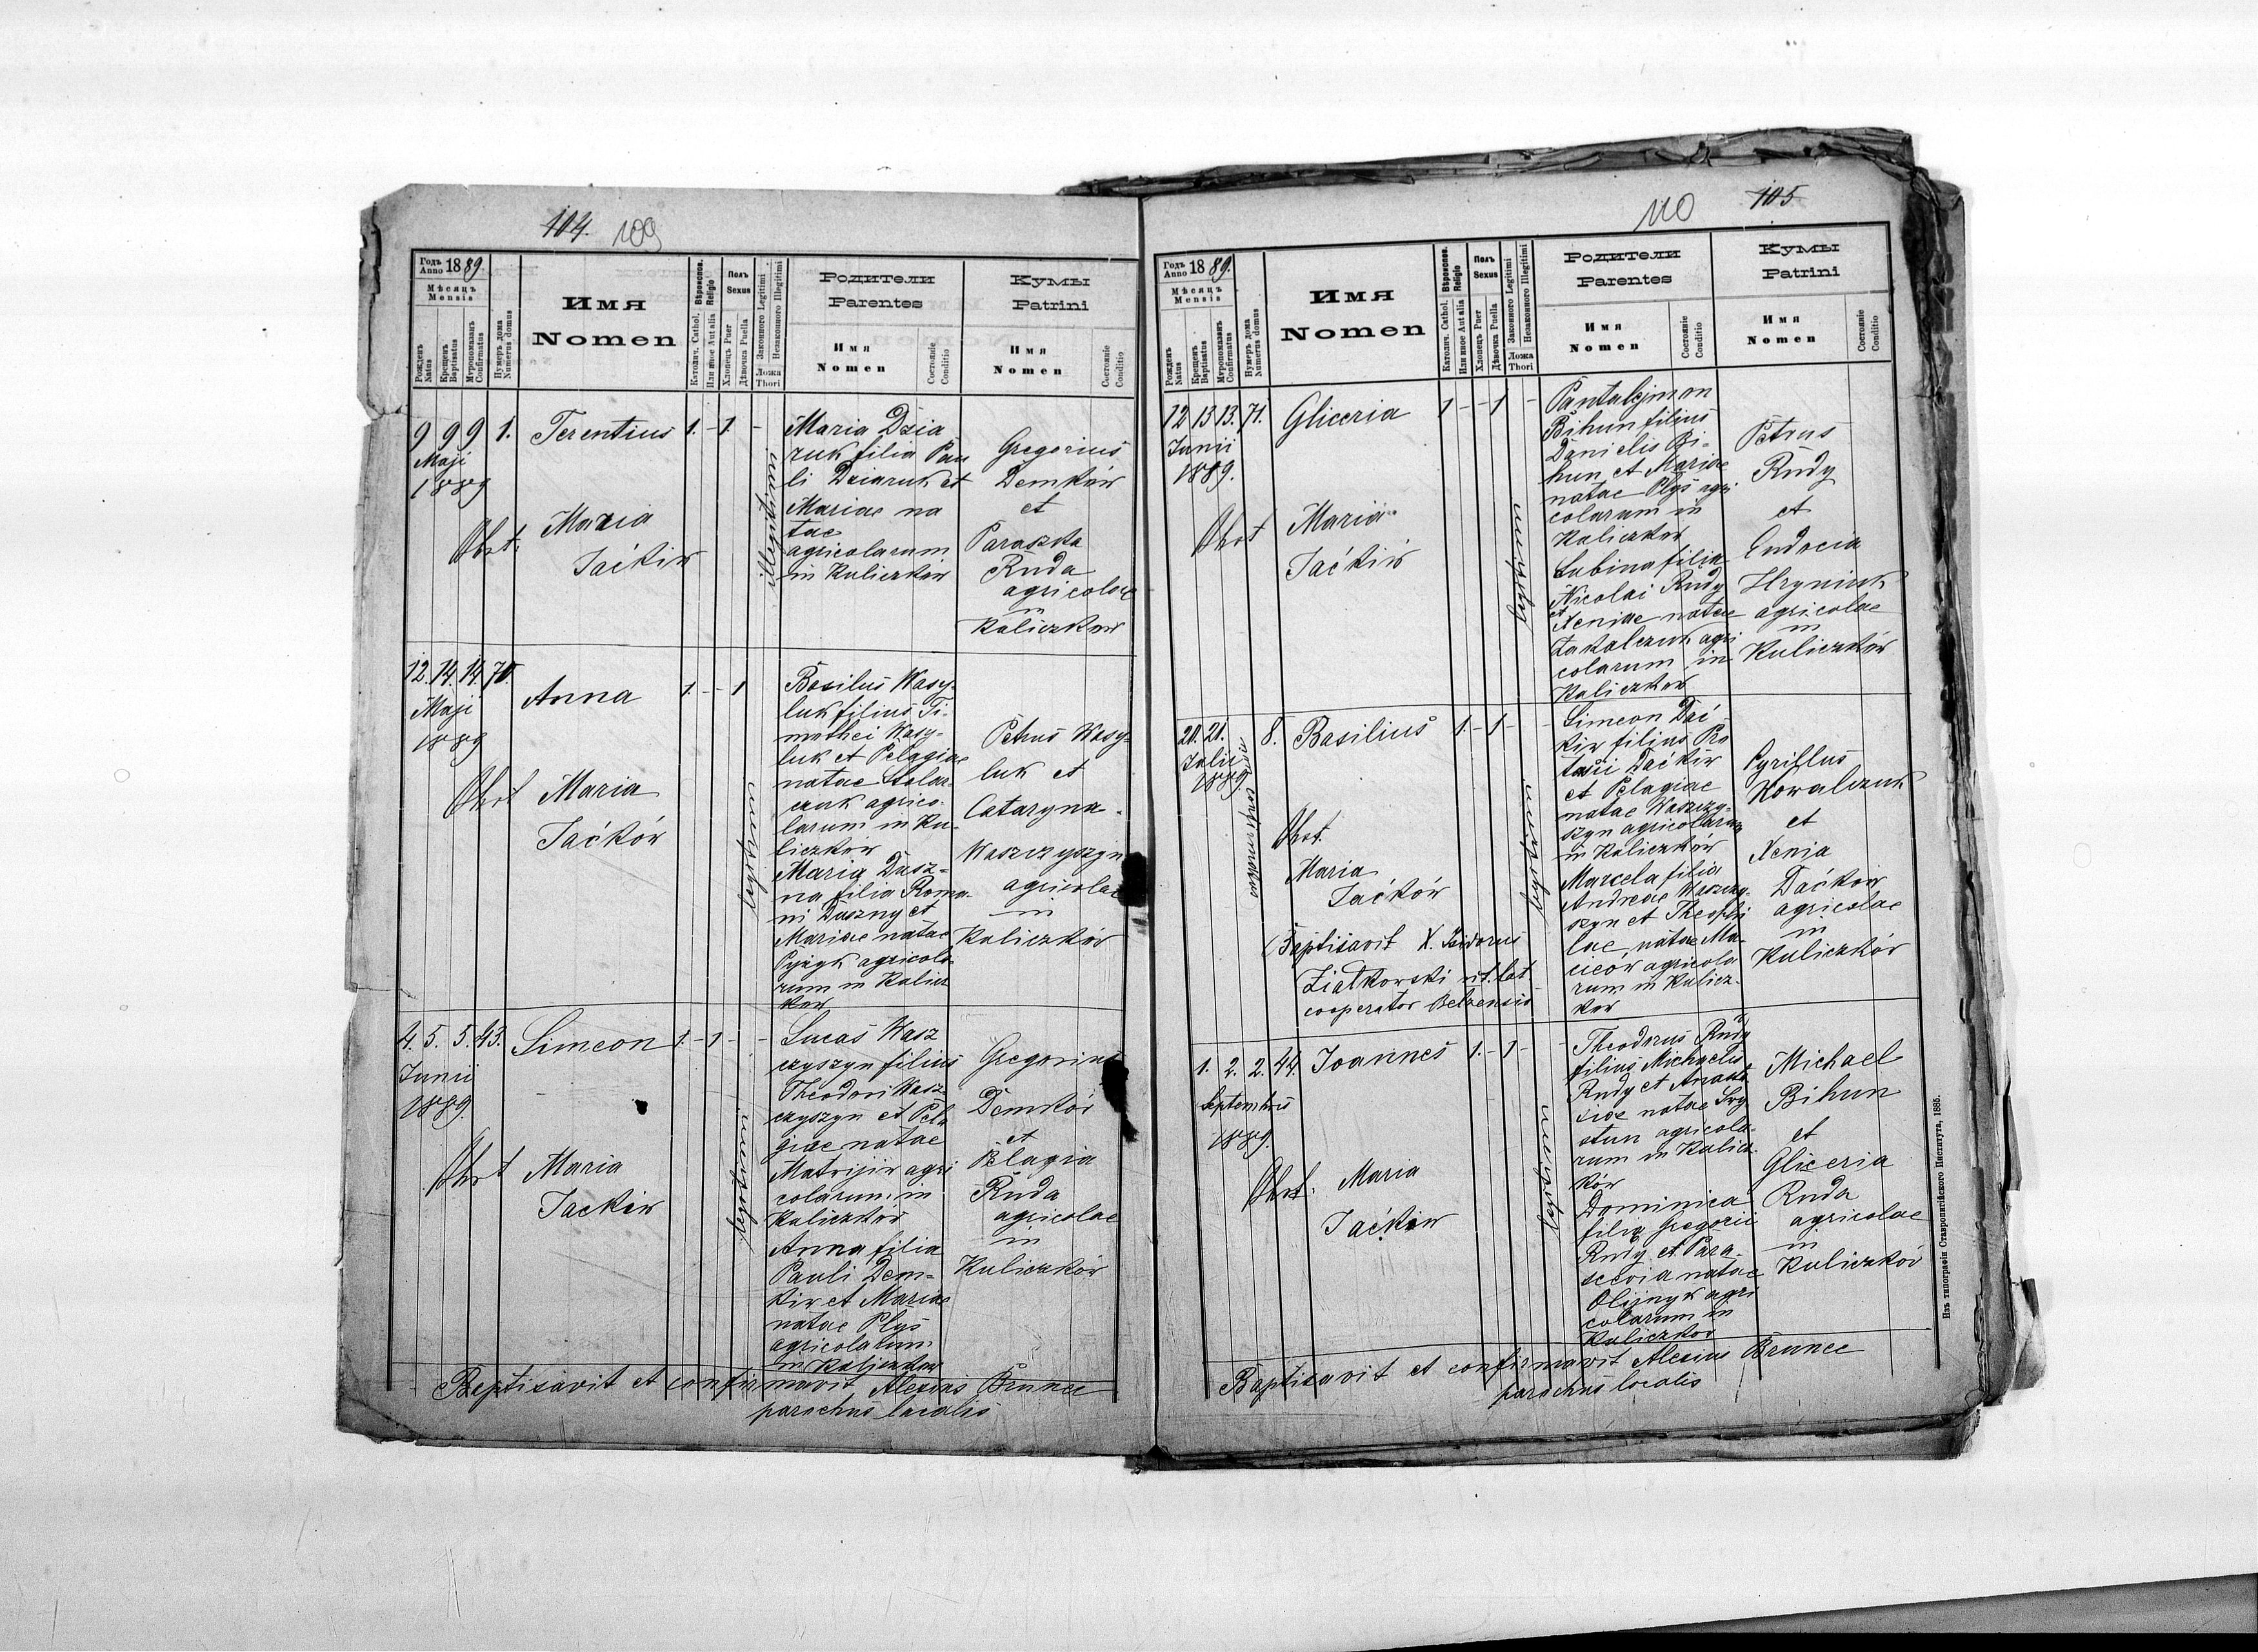 104. 109
Годъ Anno 1889
Мѣсяцъ Mensis
Рожденъ Natus
Крещенъ Baptisatus
Мѵропомазанъ Confirmatus
Нумеръ дома Numerus domus
Имя
Nomen
Вѣроиспов. Religio
Католич. Cathol.
Или иное Aut alia
Полъ Sexus
Хлопецъ Puer
Дѣвочка Puella
Законного Legitimi
Незаконного Illegitimi
Ложа Thori
Родители
Parentes
Имя
Nomen
Состояніе Conditio
Кумы
Patrini
Имя
Nomen
Состояніе Conditio
9 9 9 1. Terentius 1. - 1. -
Maji
1889
Obst. Maria
Jaćkiw
illegitimi
Maria Dzia
ruk filia Pau
li Dziaruk et
Mariae na
tae
agricolarum
in Kuliczków
Gregorius
Demków
et
Paraszka
Ruda
agricolae
in
Kuliczkow
12. 14. 14. 70. Anna 1. - - 1
Maji
1889
Obst Maria
Jaćków
legitimi
Basilus Wasy-
luk filius Ti-
mothei Wasy-
luk et Pelagiae
natae Stolar-
czuk agrico-
larum in Ku-
liczkow
Maria Dusz-
na filia Roma-
ni Duszny et
Mariae natae
Pyzyk agricola-
rum in Kulicz
kow
Petrus Wasy-
luk et
Cataryna
Waszczyszyn
agricolae
in
Kuliczków
4. 5. 5. 43. Simeon 1. - 1 - -
Junii
1889.
Obst Maria
Jackiw
legitimi
Lucas Wasz
czyszyn filius
Theodori Wasz
czyszyn et Pela
giae natae
Matvijiw agri
colarum in
Kuliczków
Anna filia
Pauli Dem-
kiw et Mariae
natae Plyś
agricolarum
in Kuliczkow
Gregorius
Demków
et
Pelagia
Ruda
agricolae
in
Kuliczków
Baptisavit et confirmavit Alexius Brunec
parochus localis
110 105
Годъ Anno 1889.
Мѣсяцъ Mensis
Рожденъ Natus
Крещенъ Baptisatus
Мѵропомазанъ Confirmatus
Нумеръ дома Numerus domus
Имя
Nomen
Вѣроиспов. Religio
Католич. Cathol.
Или иное Aut alia
Полъ Sexus
Хлопецъ Puer
Дѣвочка Puella
Законного Legitimi
Незаконного Illegitimi
Ложа Thori
Родители
Parentes
Имя
Nomen
Состояніе Conditio
Кумы
Patrini
Имя
Nomen
Состояніе Conditio
12 13 13. 71. Gliceria 1 - - 1 -
Junii
1889.
Obst Maria
Jaćkiw
legitimi
Pantalejmon
Bihun filius
Danielis Bi-
hun et Mariae
natae Plyś agri
colarum in
Kuliczkow
Lubina filia
Nicolai Rudy
et Xeniae natae
agri
colarum in
Kuliczkow
Petrus
Rudy
et
Eudocia
Hryniuk
agricolae
in
Kuliczków
20. 21. 8. Basilius 1. - 1 -
Julii
1889.
non confirmatus
Obst.
Maria
Jaćków
Baptisavit X. Isidorus
Ziątkowski rit. lat.
cooperator Belzensis
legitimi
Simeon Dać-
kiw filius Pro
tasii Daćkiw
et Pelagiae
natae Waszczy-
szyn agricolarum
in Kuliczków
Marcela filia
Andreae Waszczy-
szyn et Theophi
lae natae Ma-
ciców agricola
rum in Kulicz-
kow
Cyrillus
Kowalczuk
et
Xenia
Daćkow
agricolae
in
Kuliczków
1. 2. 2. 44. Joannes 1. - 1 - -
Septembris
1889.
Obst. Maria
Jaćkiw
legitimi
Theodorus Rudy
filius Michaelis
Rudy et Anasta
siae natae
agricola-
rum in Kulicz-
ków
Dominica
filia Gregorii
Rudy et Para-
scevia natae
Olijnyk agri
colarum in
Kuliczkow
Michael
Bihun
et
Gliceria
Ruda
agricolae
in
Kuliczków
Baptisavit et confirmavit Alexius Brunec
parochus localis
Изъ типографіи Ставропигійского Института, 1885.